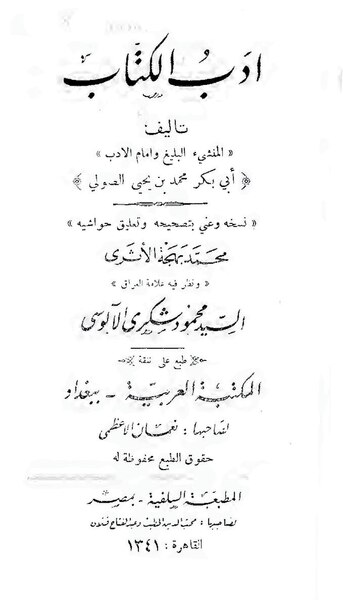 ادب الكتّاب
تاليف
« المنشيء البليغ وامام الادب »
﴿ أبي بكر محمد بن يحيى الصولي ﴾
« نسخه وعني بتصحيحه وتعليق حواشيه »
محمد بهجة الأثرى
« ونظر فيه علامة العراق »
السيد محمود شكرى الآلوسى
طبع على نفقة
المكتبة العربية - ببغداد
لصاحبها : نعمان الاعظمى
حقوق الطبع محفوظة له
المطبعة السلفية - بمصر
لصاحبيها : محب الدين الخطيب وعبد الفتاح قتلان
القاهرة : ١٣٤١